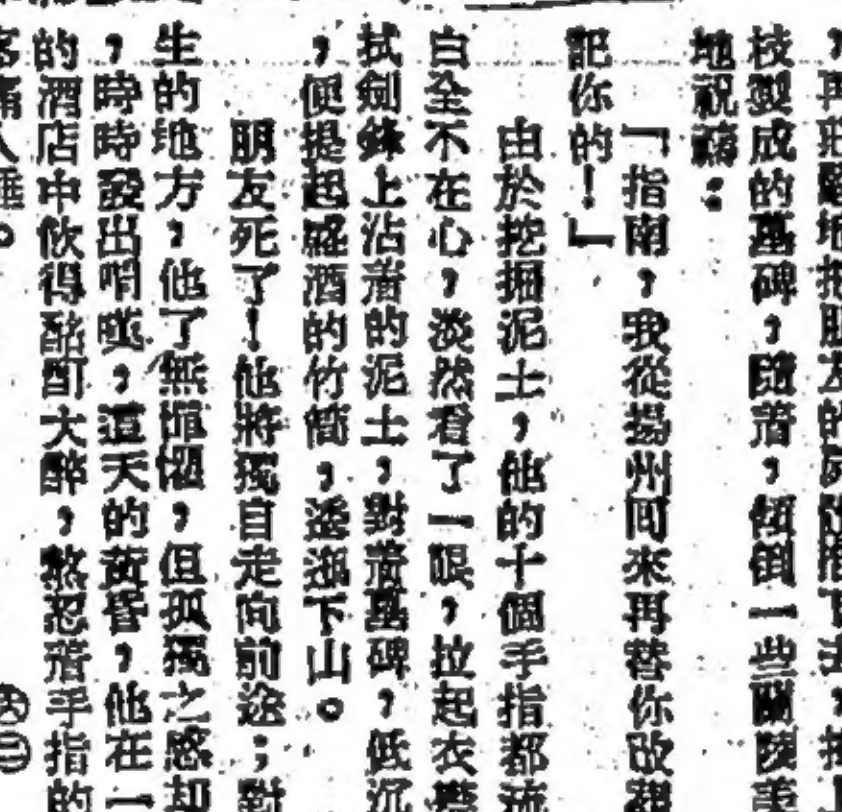 ，再壯嚴地把朋友的
枝製成的墓碑，隨着，傾倒一些蘭陵美
地祝禱：
「指南，我從揚州回來再替你改
記你的！」
由於挖掘泥土，他的十個手指都流
白全不在心，淡然看了一眼，拉起衣襟
拭劍鋒上沾着的泥土，對着墓碑，低沉
，便提起盛酒的竹筒，逶迤下山。
朋友死了！他將孤自走向前途；對
生的地方，他了無憚慍，但孤獨之感却
，時時發出哨嘆，這天的黃昏，他在一
的酒店中飲得酩酊大醉，熬忍着手指的